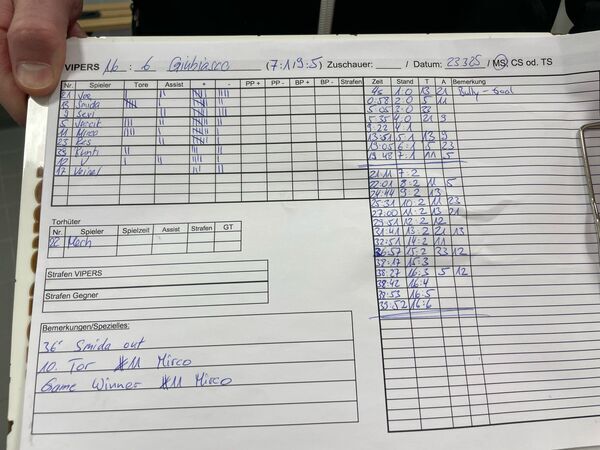 VIPERS 16 : 6 Giubiasco (7:1/9:5) Zuschauer: / Datum: 23.3.25 / MS, CS od. TS
Nr. Spieler Tore Assist + - PP + PP - BP + BP - Strafen
21
13 Smida
9 Sevi
5
11 Mirco
23 Res
33
12
17
Torhüter
Nr. Spieler Spielzeit Assist Strafen GT
Strafen VIPERS
Strafen Gegner
Bemerkungen/Spezielles:
36' Smida out
10. Tor #11 Mirco
Game Winner #11 Mirco
Zeit Stand T A Bemerkung
1:0 13 21 Bully-Goal
0:58 2:0 5 11
5:05 3:0 23
5:35 4:0 21 9
9:22 4:1
13:51 5:1 13 9
19:05 6:1 5 23
19:48 7:1 11 5
21:11 7:2
22:01 8:2 11 5
24:44 9:2 13
25:31 10:2 11 23
27:00 11:2 13 21
29:51 12:2 12
31:41 13:2 21 13
32:51 14:2 11
36:57 15:2 33 12
38:17 15:3
38:27 16:3 5 12
38:42 16:4
38:53 16:5
39:52 16:6